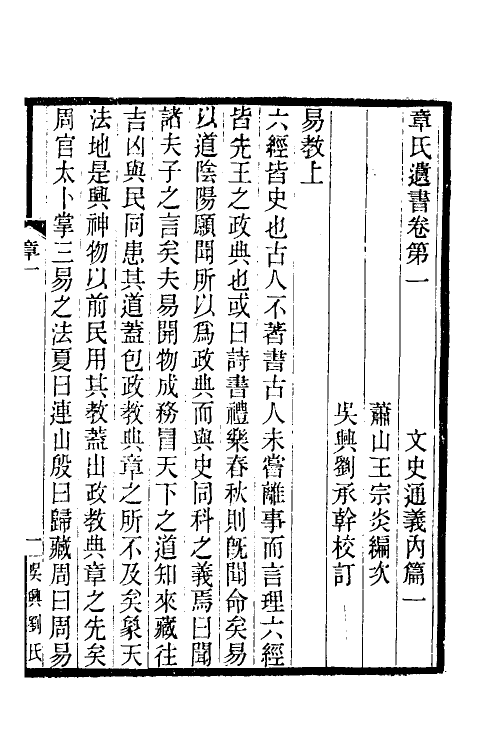 章氏遺書卷第一　文史通義內篇一
蕭山王宗炎編次
吳興劉承幹校訂
易教上
六經皆史也古人不著書古人未嘗離事而言理六經
皆先王之政典也或曰詩書禮樂春秋則旣聞命矣易
以道陰陽願聞所以爲政典而與史同科之義焉曰聞
諸夫子之言矣夫易開物成務冒天下之道知來藏往
吉凶與民同患其道蓋包政教典章之所不及矣象天
法地是興神物以前民用其教蓋出政教典章之先矣
周官太卜掌三易之法夏曰連山殷曰歸藏周曰周易
章一
一
吳興劉氏